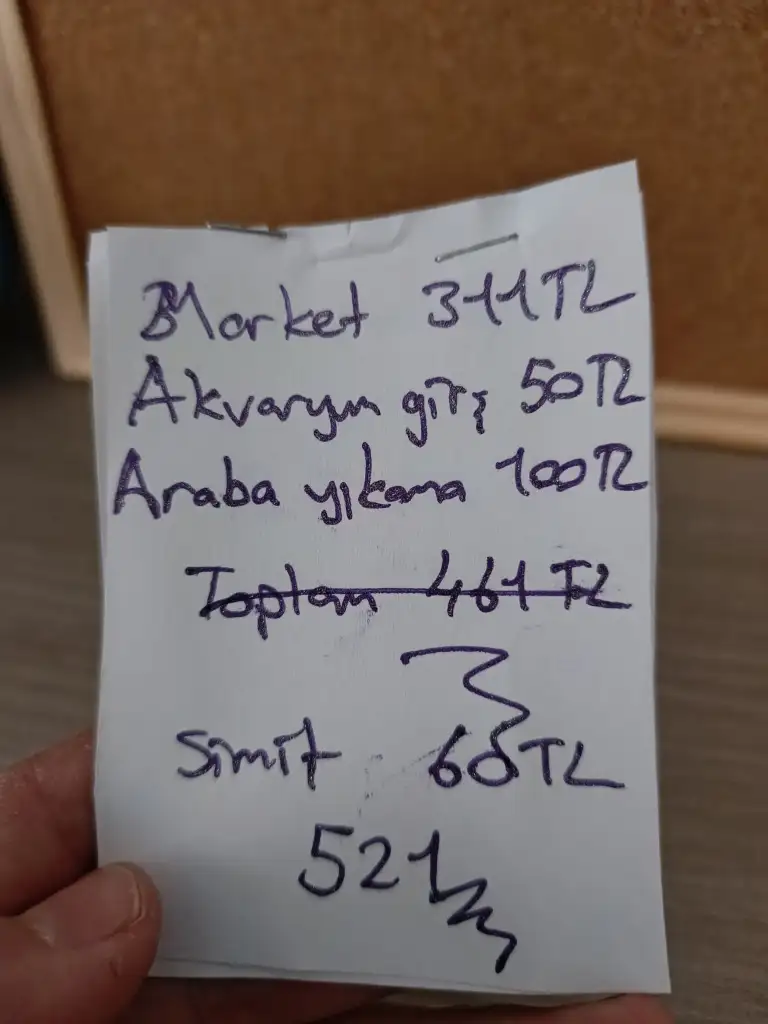 Market 311TL
Akvaryum giriş 50TL
Araba yıkama 100TL
Toplam 461 TL
Simit 60TL
521